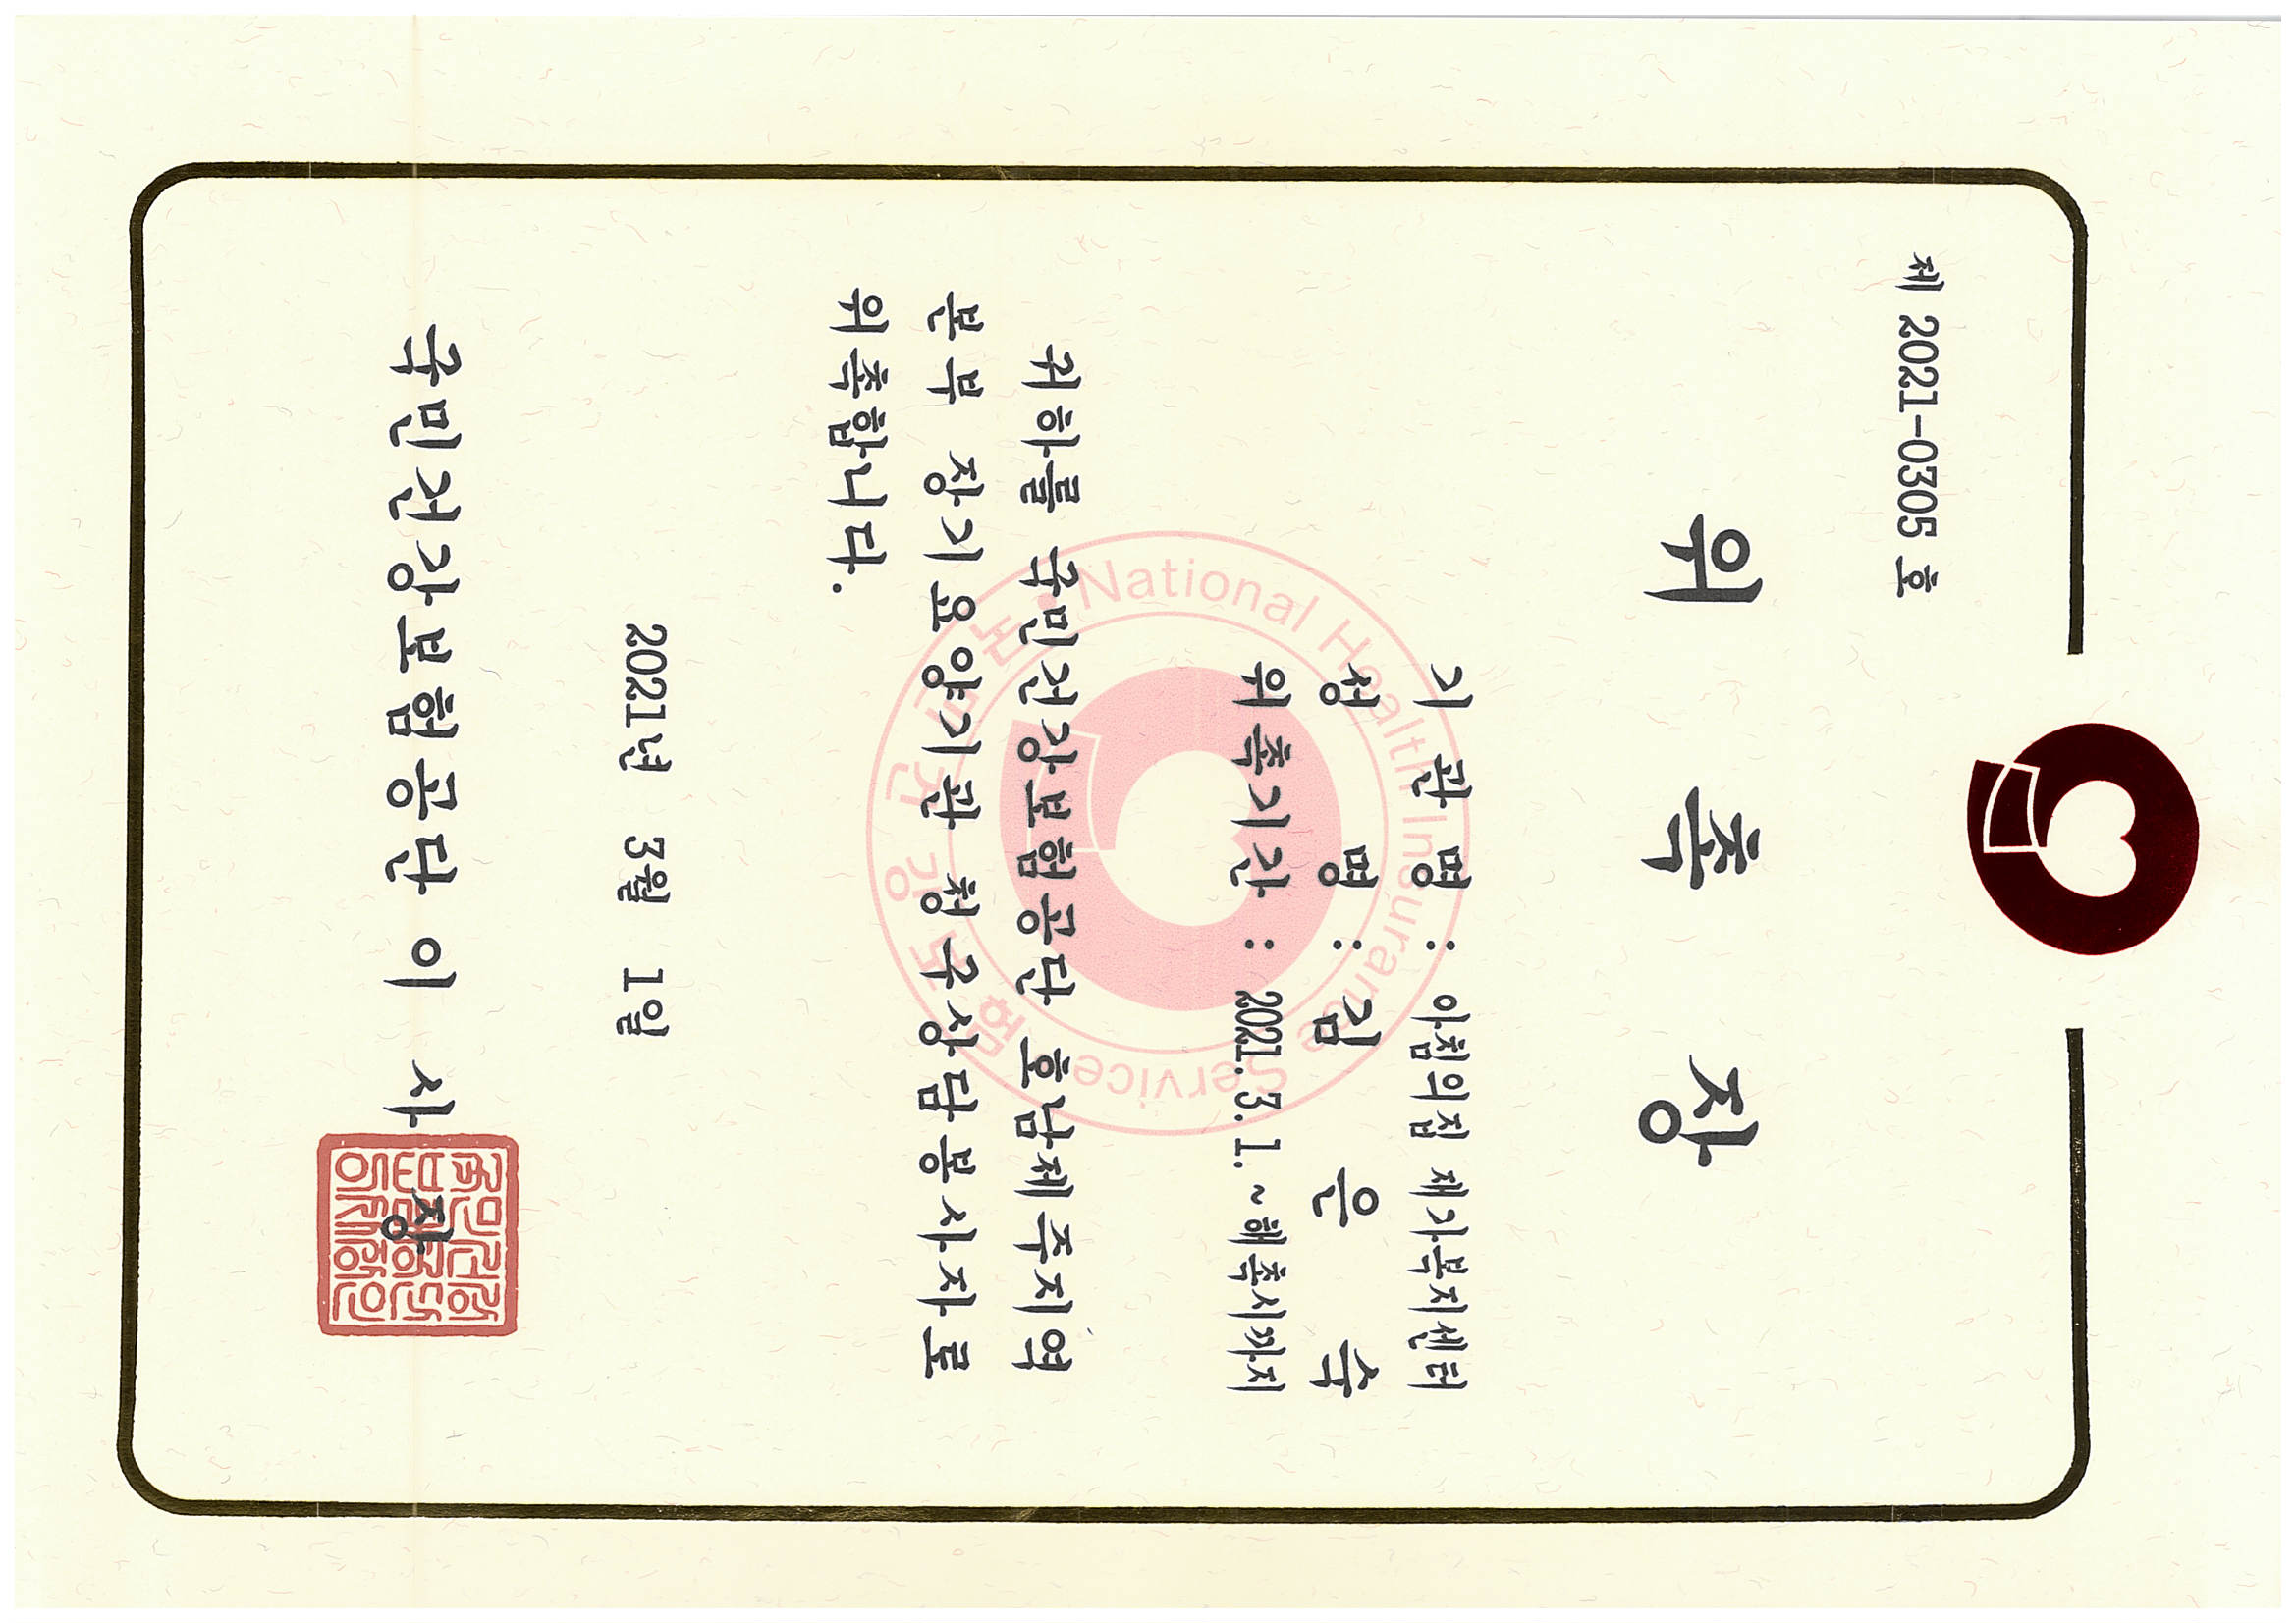 제 2021-0305 호
위 촉 장
기 관 명 : 아침의집 재가복지센터
성 명 : 김 은 숙
위촉기간 : 2021. 3. 1. ~ 해촉시까지
귀하를 국민건강보험공단 호남제주지역
본부 장기요양기관 청구상담봉사자로
위촉합니다.
2021년 3월 1일
국민건강보험공단 이 사 장
National Health Insurance Service
국민건강보험